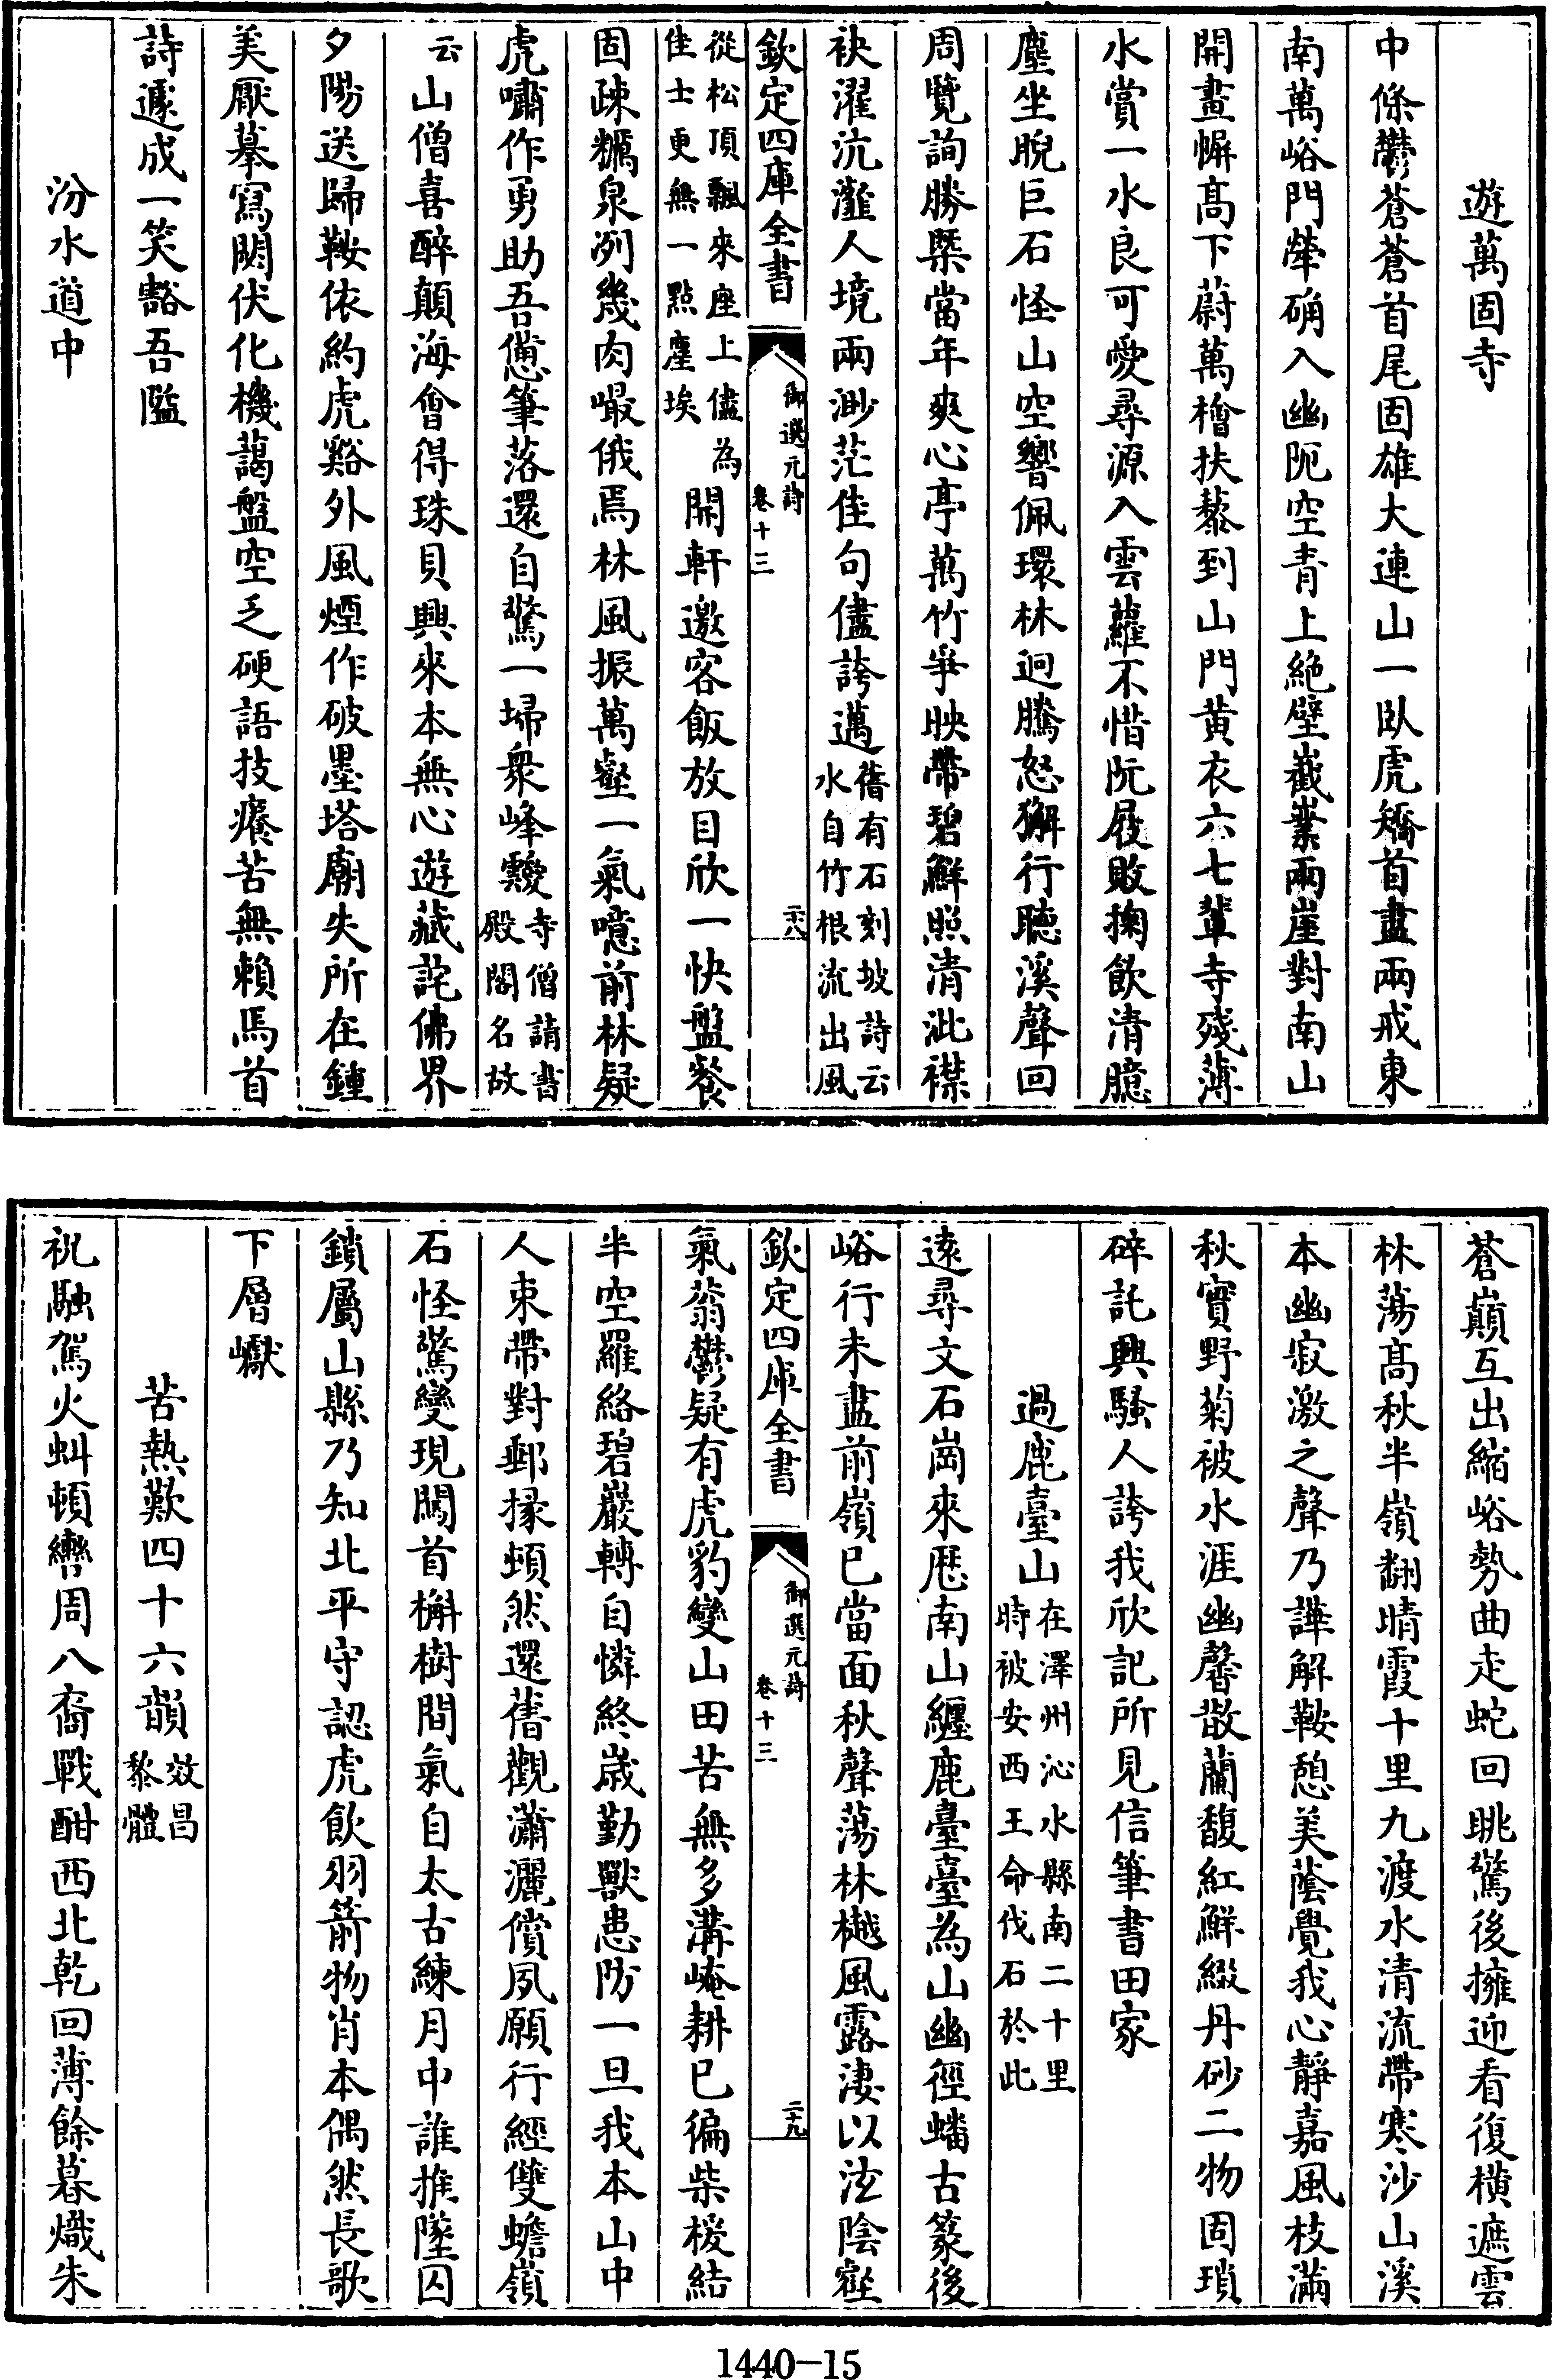 遊萬固寺
中條鬱蒼蒼首尾固雄大連山一臥虎矯首盡兩戒東
南萬峪門犖确入幽阨空青上絶壁巀嶪兩崖對南山
開畫幈高下蔚萬檜扶藜到山門黄衣六七輩寺殘薄
水賞一水良可愛尋源入雲蘿不惜阮屐敗掬飲清臆
塵坐睨巨石怪山空響佩環林迥騰怒獬行聽溪聲回
周覽詢勝槩當年爽心亭萬竹爭映帶碧鮮照清泚襟
袂濯沆瀣人境兩渺茫佳句儘誇邁舊有石刻坡詩云水自竹根流出風
欽定四庫全書 御選元詩 卷十三 二十八
從松頂飄來座上儘為佳士更無一點塵埃開軒邀客飯放目欣一快盤餐
固疎糲泉冽幾肉嘬俄焉林風振萬壑一氣噫前林疑
虎嘯作勇助吾憊筆落還自驚一埽衆峰靉寺僧請書殿閣名故
云山僧喜醉顛海會得珠貝興來本無心遊藏詫佛界
夕陽送歸鞍依約虎谿外風煙作破墨塔廟失所在鍾
美厭摹寫閟伏化機藹盤空乏硬語技癢苦無賴馬首
詩遽成一笑豁吾隘
汾水道中
蒼巔互出縮峪勢曲走蛇回眺驚後擁迎看復横遮雲
林蕩高秋半嶺翻晴霞十里九渡水清流帶寒沙山溪
本幽寂激之聲乃譁解鞍憩美蔭覺我心靜嘉風枝滿
秋實野菊被水涯幽馨散蘭馥紅鮮綴丹砂二物固瑣
碎託興騷人誇我欣記所見信筆書田家
過鹿臺山在澤州沁水縣南二十里時被安西王命伐石於此
遠尋文石崗來歷南山纏鹿臺臺為山幽徑蟠古篆後
峪行未盡前嶺已當面秋聲蕩林樾風露淒以泫陰壑
欽定四庫全書 御選元詩 卷十三 二十九
氣蓊鬱疑有虎豹變山田苦無多溝崦耕已徧柴椄結
半空羅絡碧巖轉自憐終歲勤獸患防一旦我本山中
人束帶對郵掾頓然還舊觀瀟灑償夙願行經雙蟾嶺
石怪驚變現闖首槲樹間氣自太古練月中誰推墜囚
鎖屬山縣乃知北平守認虎飲羽箭物肖本偶然長歌
下層巘
苦熱歎四十六韻效昌黎體
祝融駕火虯頓轡周八裔戰酣西北乾回薄餘暮熾朱
1440-15